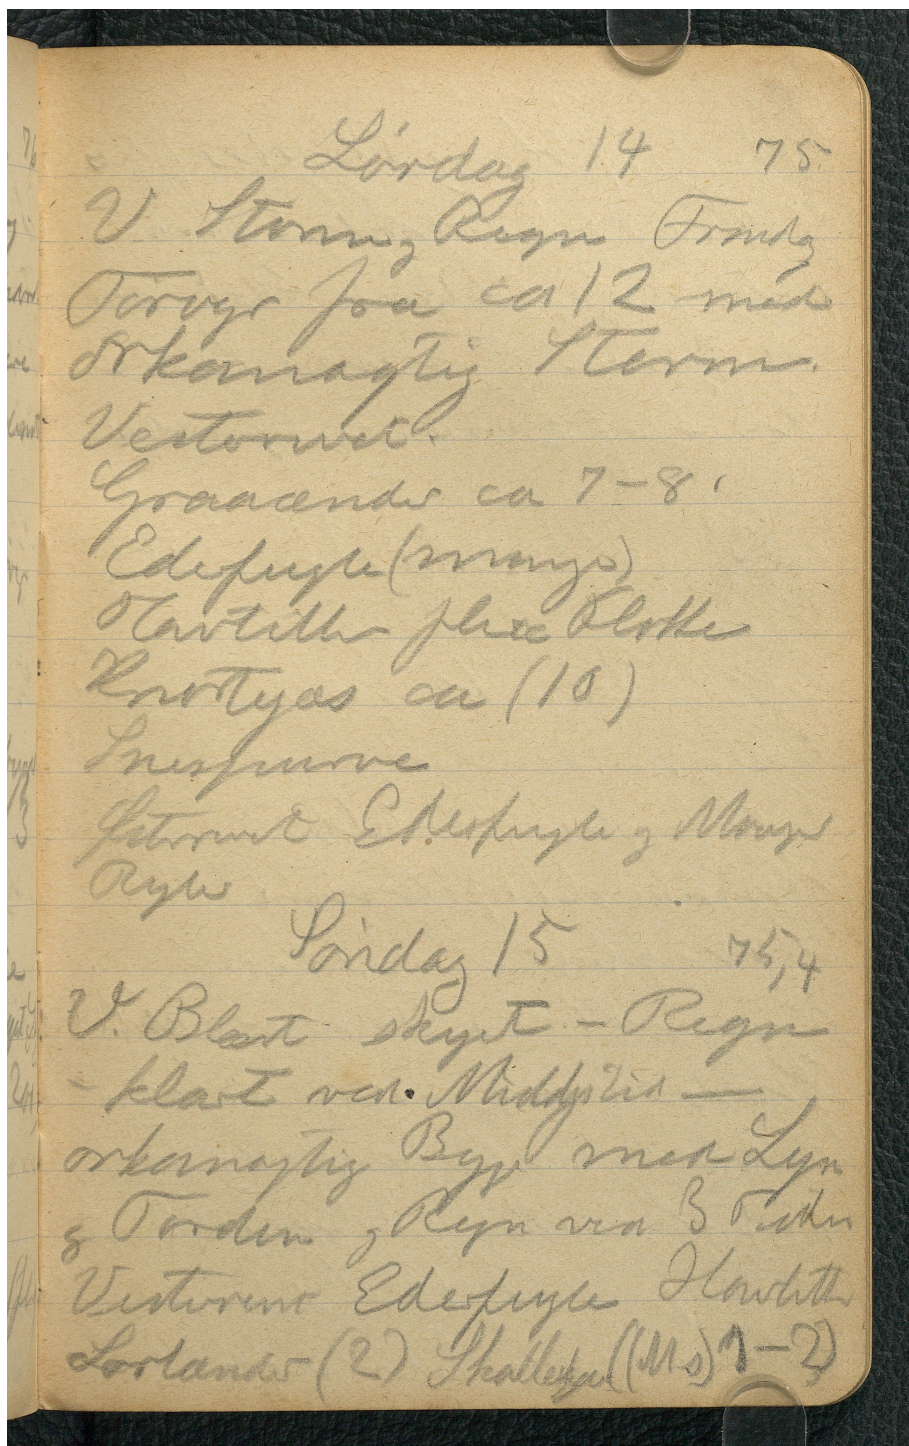 Lørdag 14 75
V Storm og Regn Formdg
Torvejr fra ca 12 med
Orkanagtig Storm.
Vestervet.
Graaænder ca 7-8.
Ederfugle (mange)
Havlitter flere Flokke
Knortgæs ca (10)
Snespurve
Østervet Ederfugle og Mange
Ryler
Søndag 15 75,4
V. Blæst skyet - Regn
- klart ved Middgstid —
orkanagtig Byge med Lyn
og Torden og Regn ved 3 Tiden
Vestervet Ederfugle Havlitter
Sortænder (2) Skallesl ((Ms) 1-2)